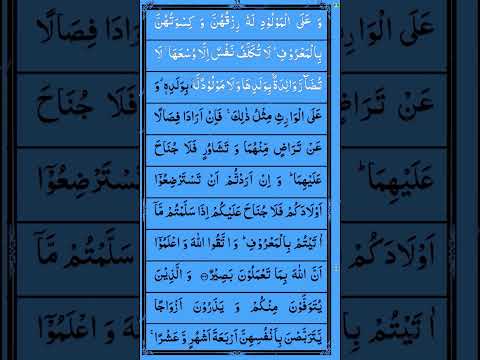 وَ عَلَى الْمَوْلُوْدِ لَهٗ رِزْقُهُنَّ وَ كِسْوَتُهُنَّ
بِالْمَعْرُوْفِ ؕ لَا تُكَلَّفُ نَفْسٌ اِلَّا وُسْعَهَا ۚ لَا
تُضَآرَّ وَالِدَةٌۢ بِوَلَدِهَا وَ لَا مَوْلُوْدٌ لَّهٗ بِوَلَدِهٖ ۗ وَ
عَلَى الْوَارِثِ مِثْلُ ذٰلِكَ ۚ فَاِنْ اَرَادَا فِصَالًا
عَنْ تَرَاضٍ مِّنْهُمَا وَ تَشَاوُرٍ فَلَا جُنَاحَ
عَلَيْهِمَا ؕ وَ اِنْ اَرَدْتُّمْ اَنْ تَسْتَرْضِعُوْۤا
اَوْلَادَكُمْ فَلَا جُنَاحَ عَلَيْكُمْ اِذَا سَلَّمْتُمْ مَّاۤ
اٰتَيْتُمْ بِالْمَعْرُوْفِ ؕ وَ اتَّقُوا اللّٰهَ وَ اعْلَمُوْۤا
اَنَّ اللّٰهَ بِمَا تَعْمَلُوْنَ بَصِيْرٌ وَ الَّذِيْنَ
يُتَوَفَّوْنَ مِنْكُمْ وَ يَذَرُوْنَ اَزْوَاجًا
يَّتَرَبَّصْنَ بِاَنْفُسِهِنَّ اَرْبَعَةَ اَشْهُرٍ وَّ عَشْرًا ۚ